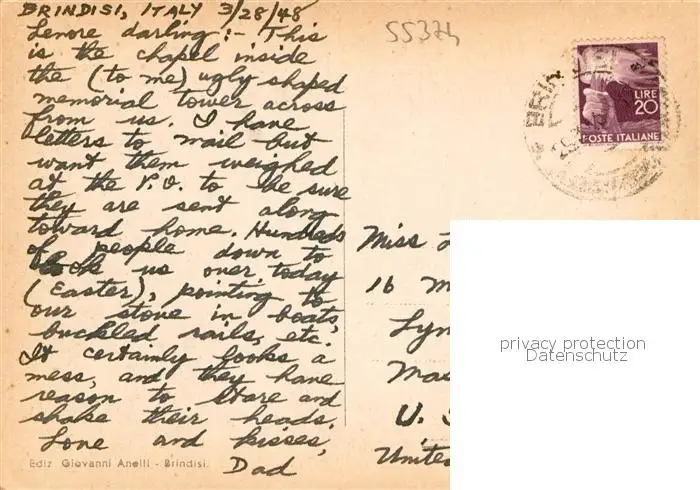 BRINDISI, ITALY 3/28/48
Lenore darling:- This
is the chapel inside
the (to me) ugly shaped
memorial tower across
from us. I have
letters to mail but
want them weighed
at the P.O. to be sure
they are sent along
toward home. Hundreds
of people down to
look us over today
(Easter), pointing to
our stove in boats,
buckled rails, etc.
It certainly looks a
mess, and they have
reason to stare and
shake their heads.
Love and kisses,
Dad
Ediz. Giovanni Anelli - Brindisi.
55374
LIRE
20
POSTE ITALIANE
BRIN
Miss L
16 M
Lyn
Mas
U. S
United
privacy protection
Datenschutz